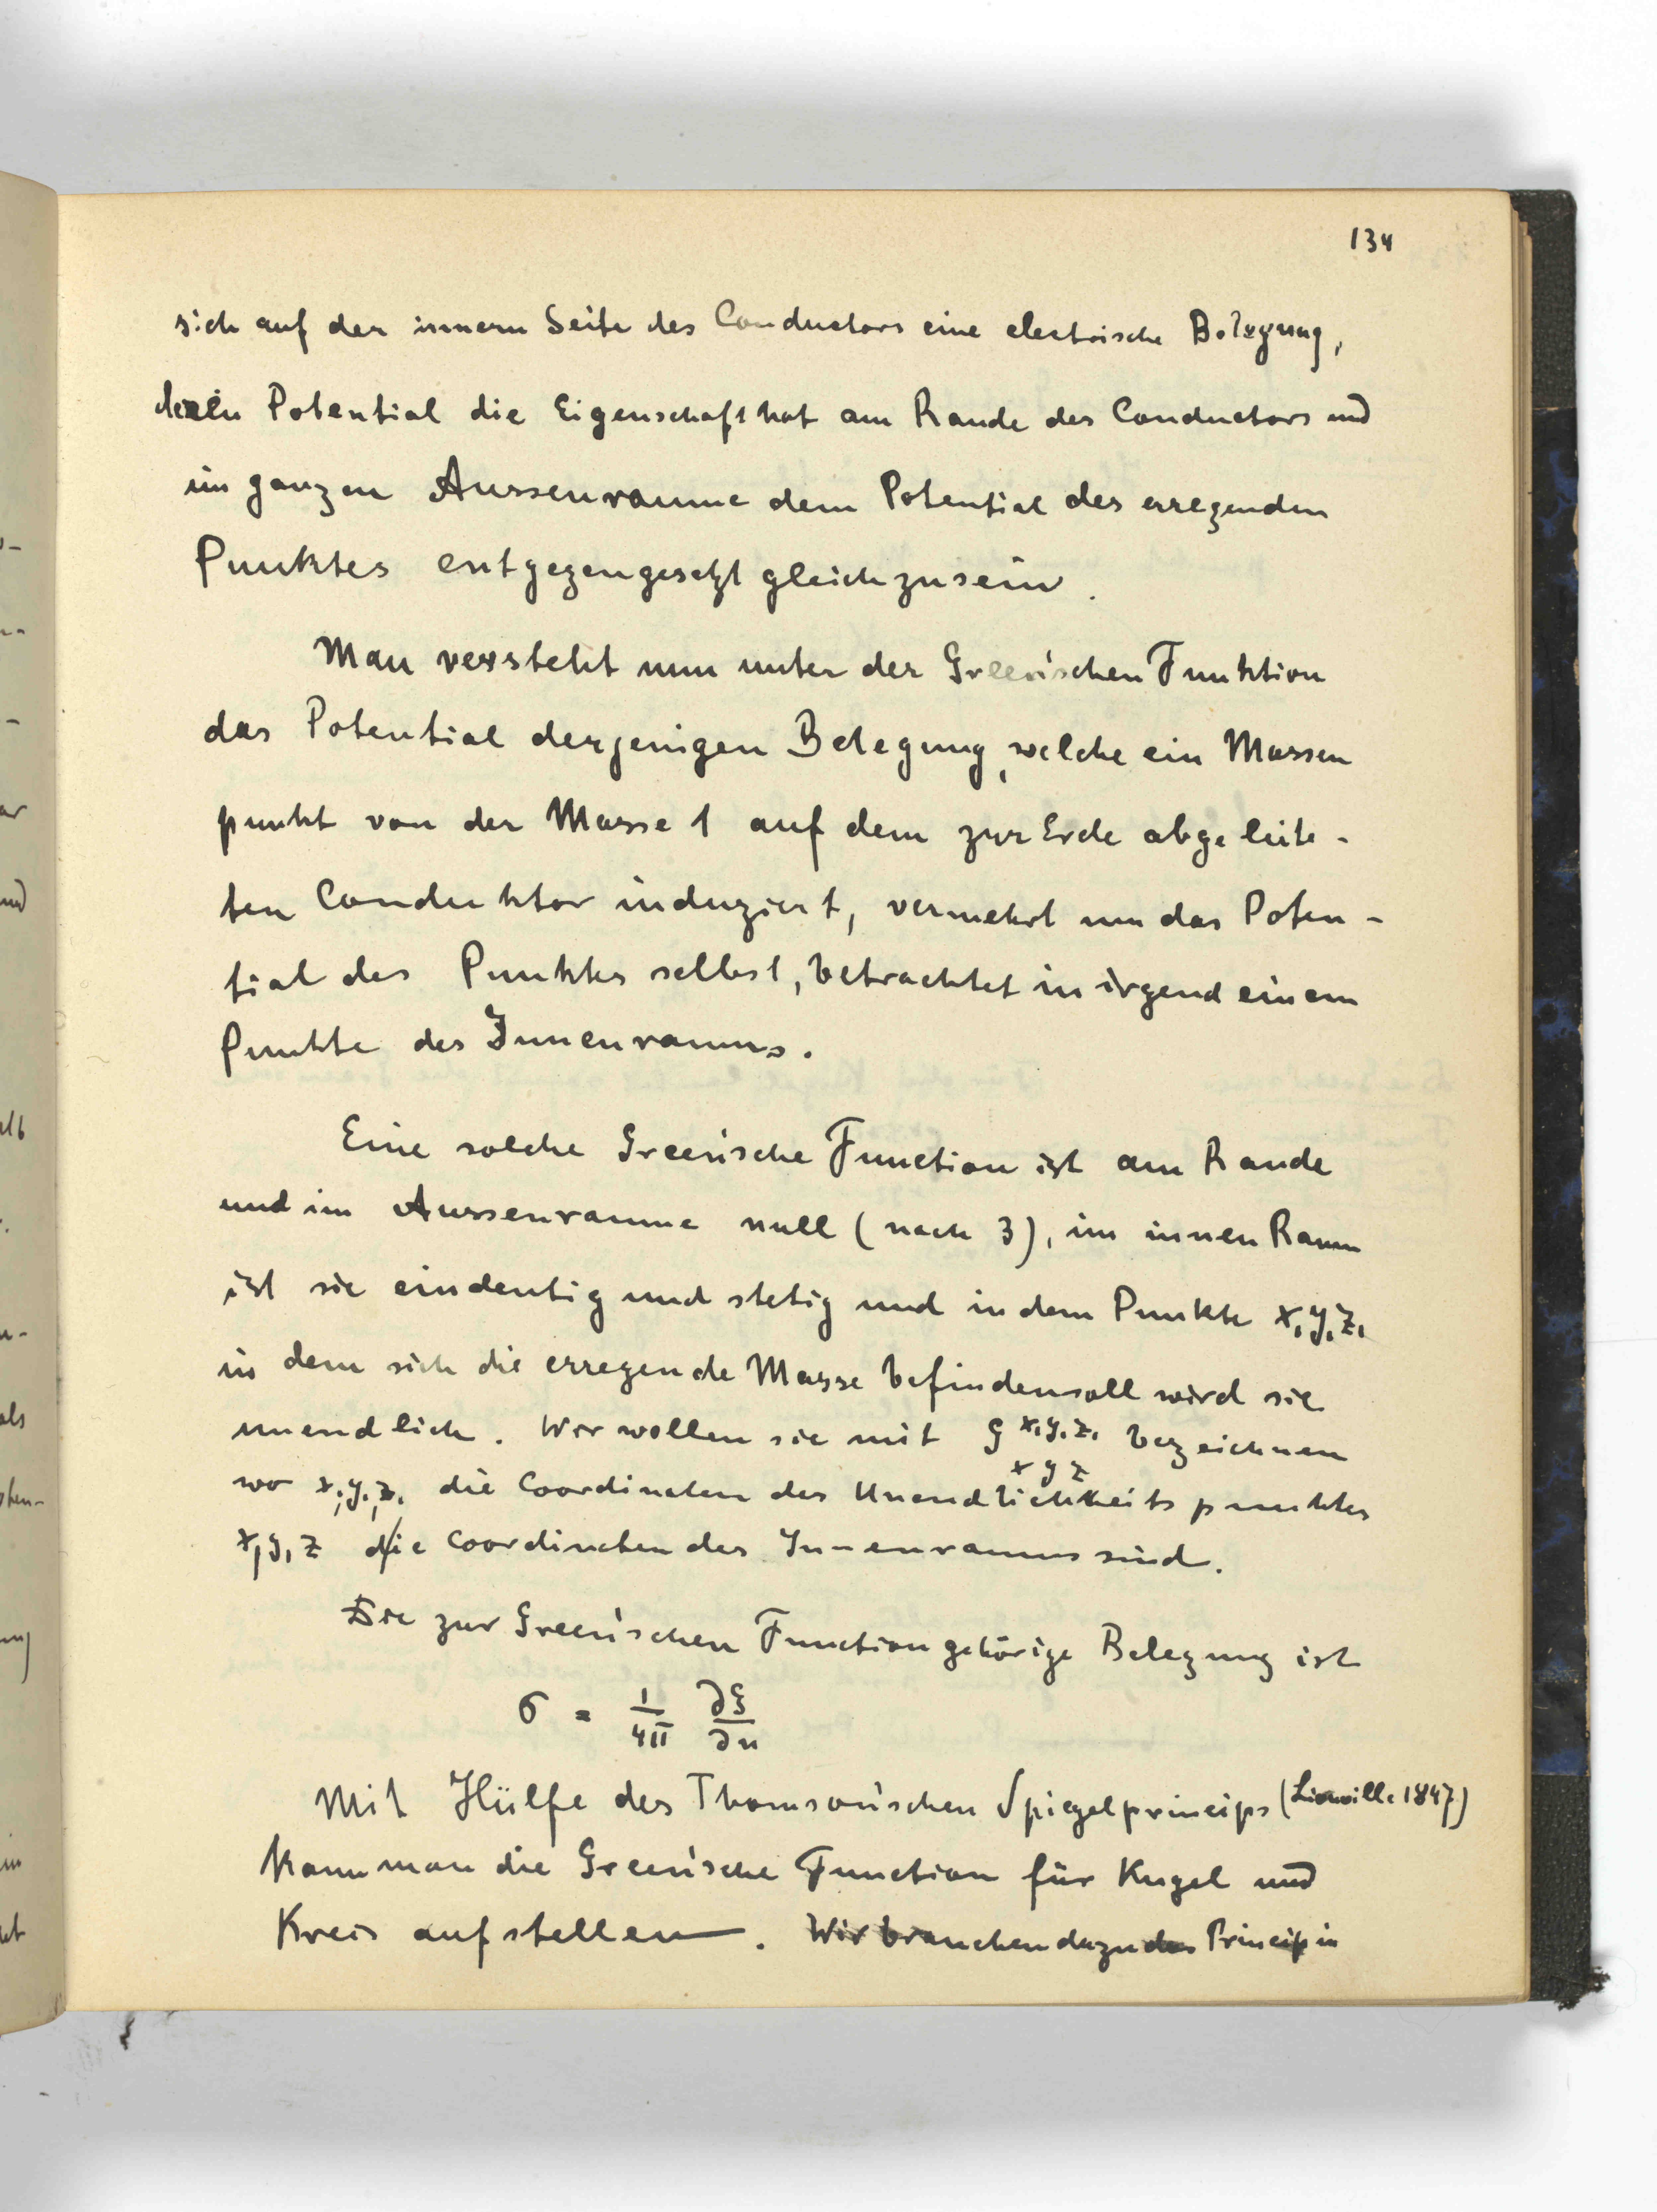 134
sich auf der innern Seite des Conductors eine electrische Belegung,
deren Potential die Eigenschaft hat am Rande des Conductors und
im ganzen Aussenraume dem Potential des erregenden
Punktes entgegengesetzt gleich zu sein.
Man versteht nun unter der Green'schen Funktion
das Potential derjenigen Belegung, welche ein Massen
punkt von der Masse 1 auf dem zur Erde abgeleite-
ten Conduktor induziert, vermehrt um das Poten-
tial des Punktes selbst, betrachtet in irgend einem
Punkte des Innenraums.
Eine solche Green'sche Function ist am Rande
und im Aussenraume null (nach 3), im innen Raum
ist sie eindeutig und stetig und in dem Punkte x₁y₁z₁
in dem sich die erregende Masse befinden soll wird sie
unendlich. Wir wollen sie mit g x₁y₁z₁ bezeichnen
x y z
wo x₁,y₁,z₁ die Coordinaten des Unendlichkeitspunktes
x,y,z die Coordinaten des Innenraums sind.
Die zur Green'schen Function gehörige Belegung ist
σ = 1/4π ∂g/∂n
Mit Hülfe des Thomson'schen Spiegelprincips (Liouville 1847)
kann man die Green'sche Function für Kugel und
Kreis aufstellen. Wir brauchen dazu das Princip in